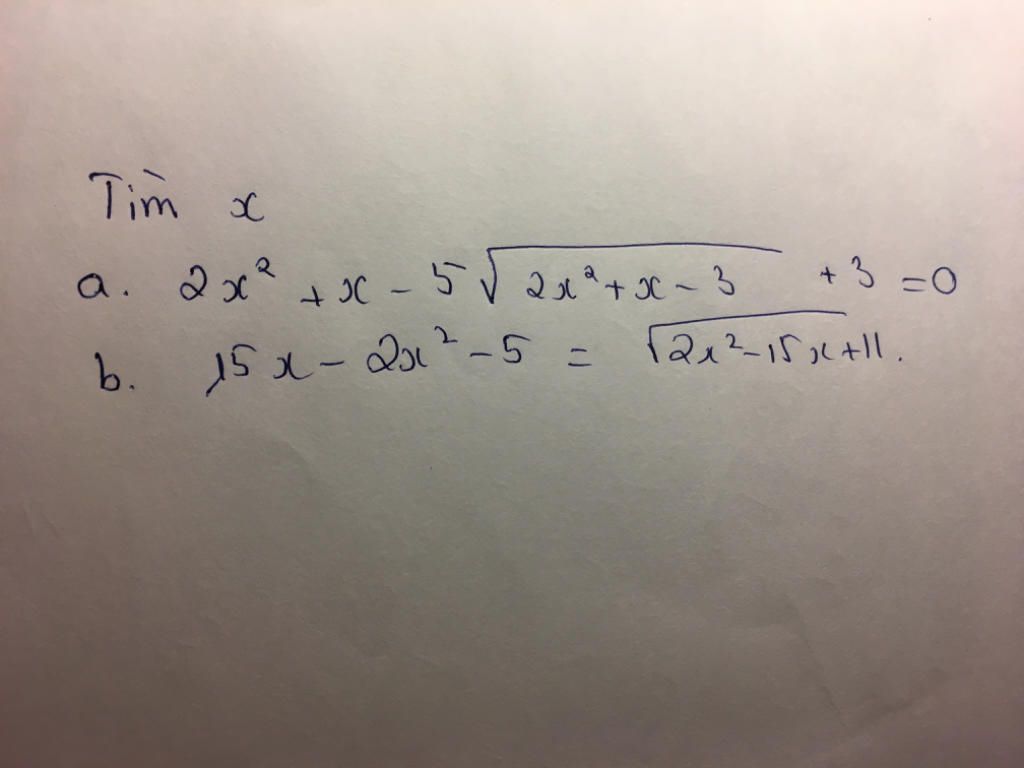 Tìm x
a. 2x² + x - 5√(2x² + x - 3) + 3 = 0
b. 15x - 2x² - 5 = √(2x² - 15x + 11).